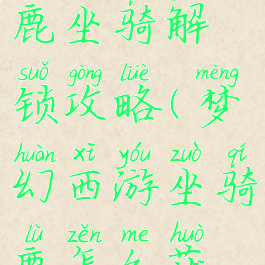 鹿坐骑解
suǒ gōng lüè mèng
锁攻略(梦
huàn xī yóu zuò qí
幻西游坐骑
lù zěn me huò
鹿怎么获